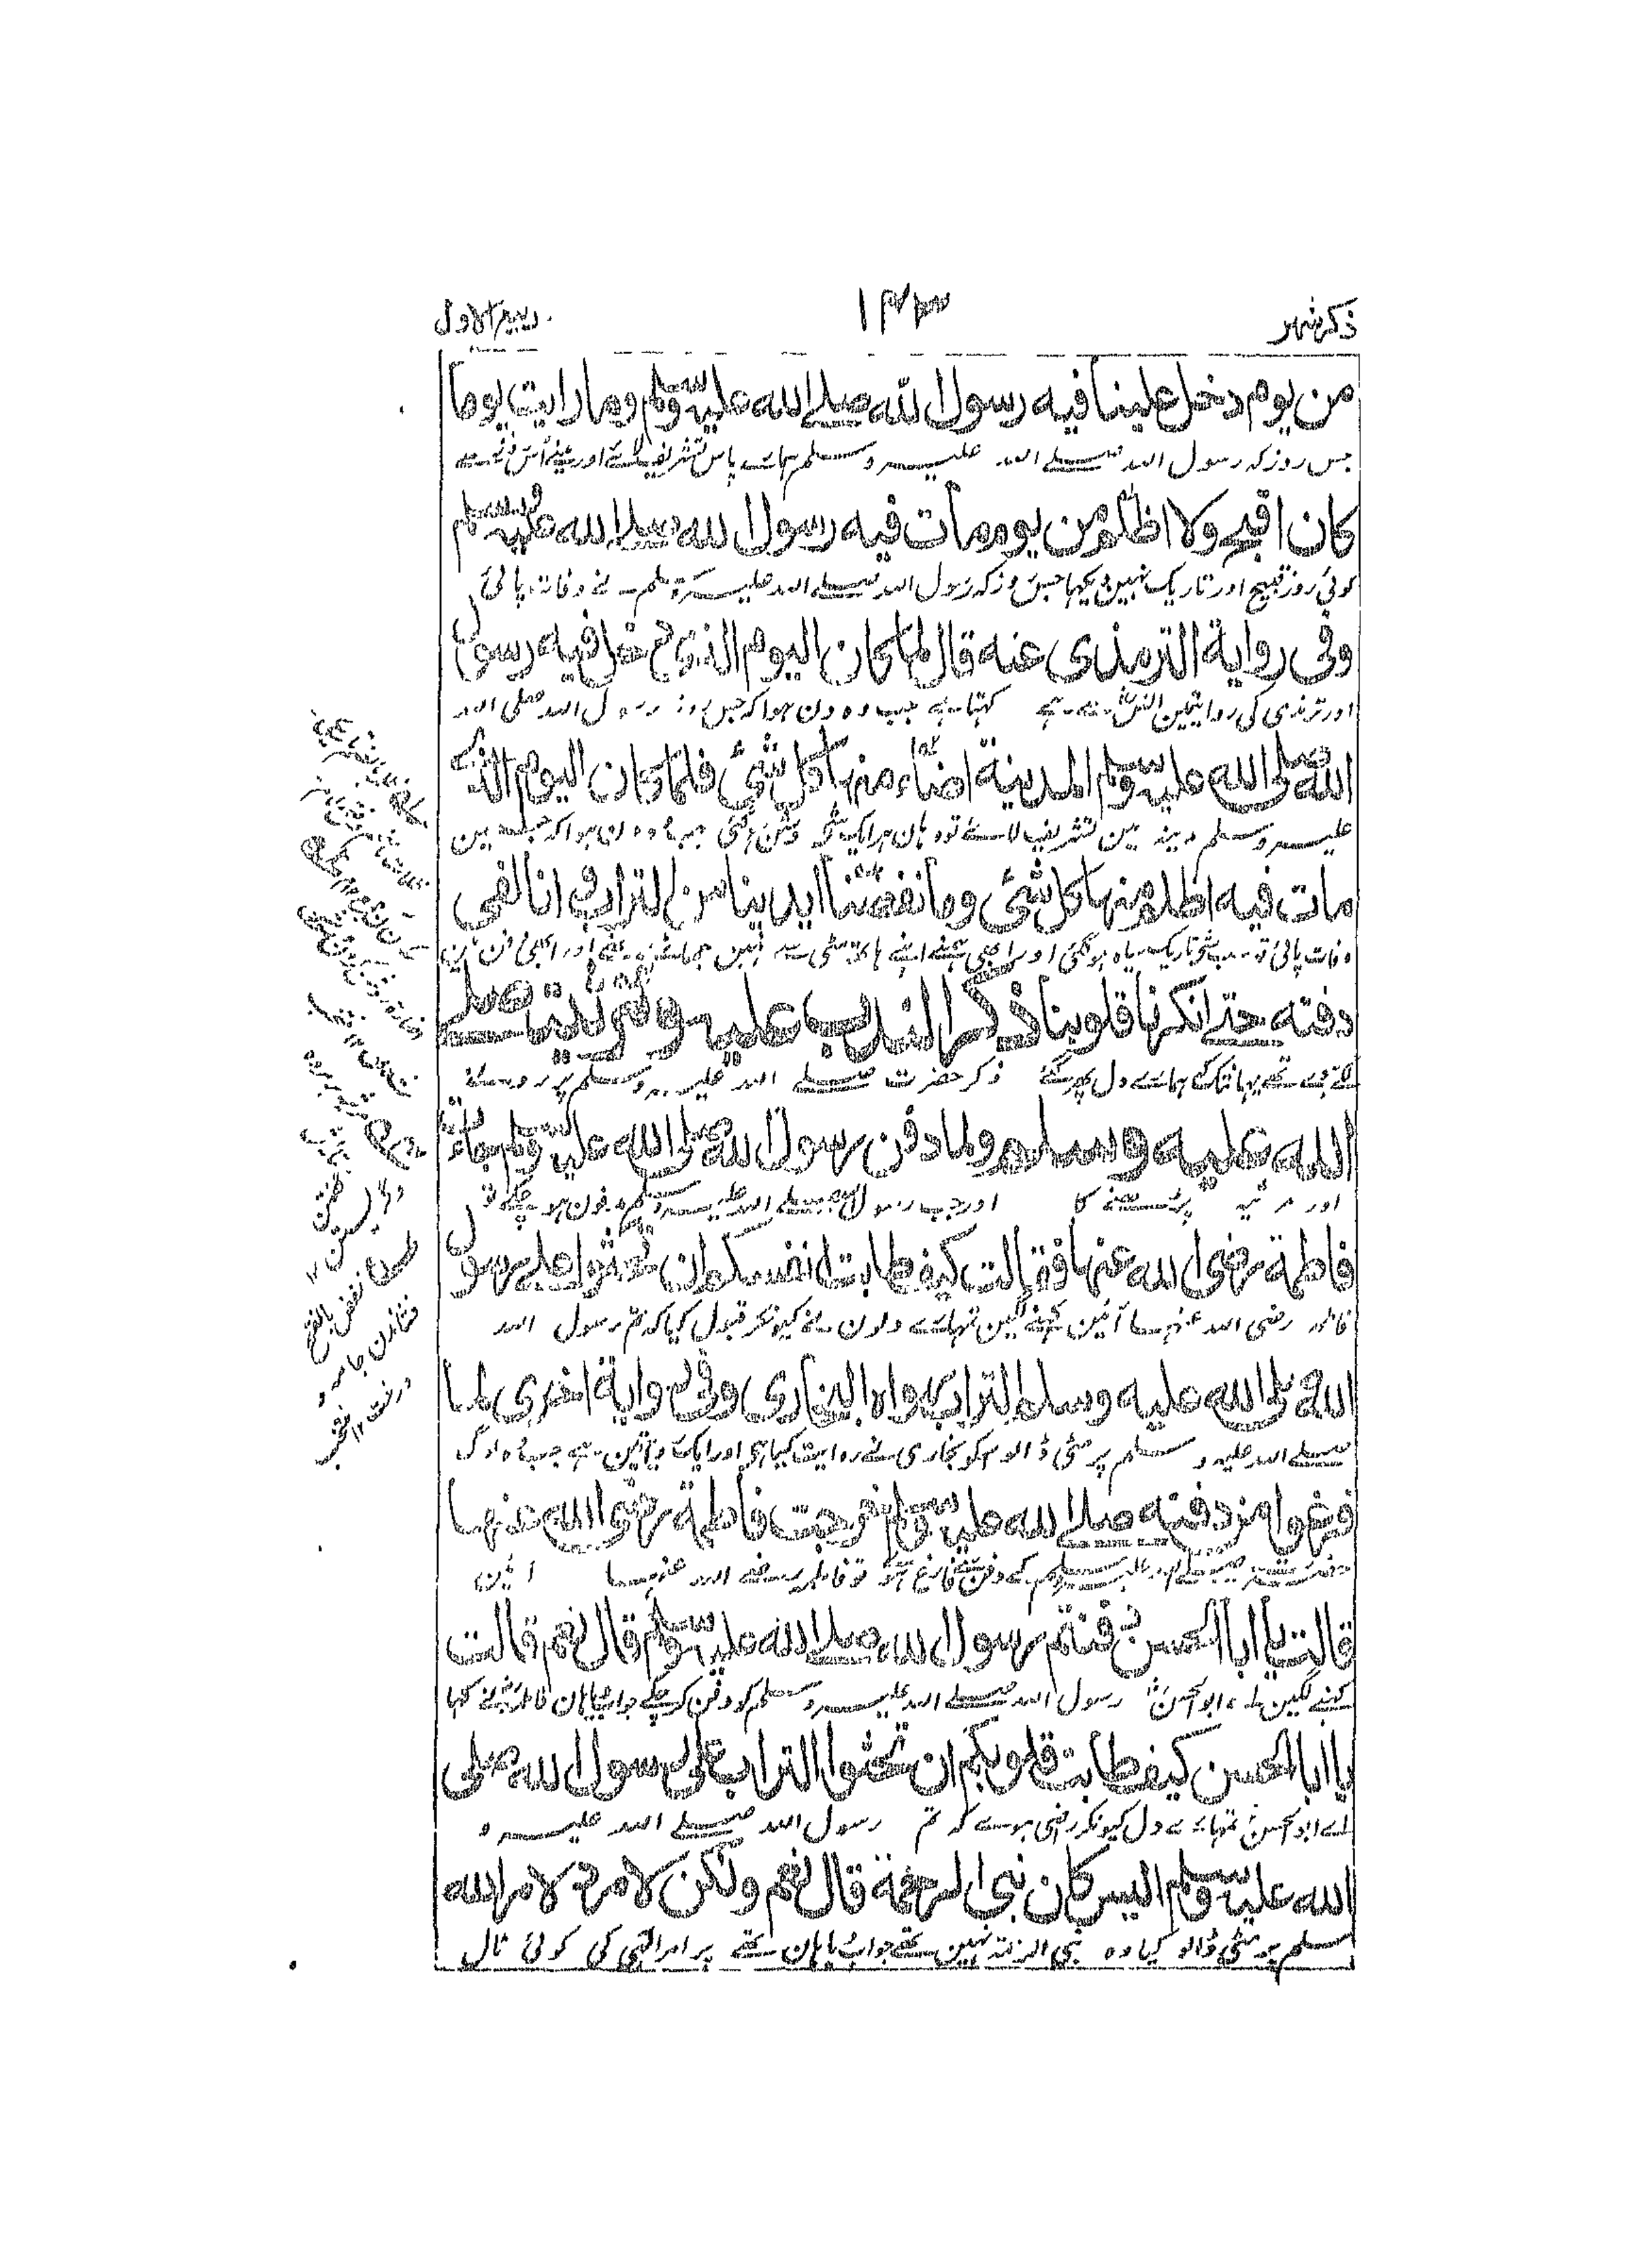 ذکر شهر ۱۴۳ ربیع الاول
من يوم دخل علينا فيه رسول الله صلے الله عليه وسلم وما رايت يوما
جس روز کہ رسول اللہ صلے اللہ علیہ وسلم ہمارے پاس تشریف لائے اور مینے اُس
كان اقبح ولا اظلم من يوم مات فيه رسول الله صلے الله عليه وسلم
کوئی روز قبیح اور تاریک نہین دیکہا جس روز کہ رسول اللہ صلے اللہ علیہ وسلم نے وفات پائی
وفى رواية الترمذى عنه قال لما كان اليوم الذى دخل فيه رسول
اور ترمذی کی روایتمین انس سے ہے کہتا ہے جب وہ دن ہوا کہ جس روز رسول اللہ صلی اللہ
الله صلى الله عليه وسلم المدينة اضاء منها كل شئ فلما كان اليوم الذى
علیہ وسلم مدینہ مین تشریف لائے تو وہان ہر ایک شی روشن ہوگئی جب وہ دن ہوا کہ جسمین
مات فيه اظلم منها كل شئ وما نفضنا ايدينا من التراب وانا لفى
وفات پائی تو سب شی تاریک سیاہ ہوگئی اور ابھی ہمنے اپنے ہاتھ مٹی سے نہین جھاڑے تھے اور ابھی دفن مین
دفنه حتى انكرنا قلوبنا ذكر الندب عليه ومرثيته صلے
لگے ہوے تھے یہانتک کہ ہمارے دل پھر گئے ذکر حضرت صلے اللہ علیہ وسلم پر رونے
الله عليه وسلم ولما دفن رسول الله صلى الله عليه وسلم جاءت
اور مرثیہ پڑھنے کا اور جب رسول اللہ صلے اللہ علیہ وسلم دفن ہو چکے تو
فاطمة رضى الله عنها فقالت كيف طابت انفسكم ان تحثوا على رسول
فاطمہ رضی اللہ عنہا آئین کہنے لگین تمہارے دلون نے کیونکر قبول کیا کہ تم رسول اللہ
الله صلى الله عليه وسلم التراب رواه البخارى وفى رواية اخرى لما
صلے اللہ علیہ وسلم پر مٹی ڈالو اسکو بخاری نے روایت کیا ہی اور ایک روایتمین ہے جب وہ لوگ
فرغوا من دفنه صلے الله عليه وسلم خرجت فاطمة رضى الله عنها
حضرت صلے اللہ علیہ وسلم کے دفن سے فارغ ہوئے تو فاطمہ رضے اللہ عنہا آئین
قالت يا ابا الحسن دفنتم رسول الله صلے الله عليه وسلم قال نعم قالت
کہنے لگین اے ابو الحسن رسول اللہ صلے اللہ علیہ وسلم کو دفن کر چکے جواب دیا ہان فاطمہ نے کہا
يا ابا الحسن كيف طابت قلوبكم ان تحثوا التراب على رسول الله صلى
اے ابو الحسن تمہارے دل کیونکر راضی ہوے کہ تم رسول اللہ صلے اللہ علیہ و
الله عليه وسلم اليس كان نبى الرحمة قال نعم ولكن لا مرد لامر الله
سلم پر مٹی ڈالو کیا وہ نبی الرحمۃ نہین تھے جواب دیا ہان تھے پر امر الہی کی کوئی ٹال
نفض بالفتح
فشاندن جامہ و
درخت ۱۲ منتخب